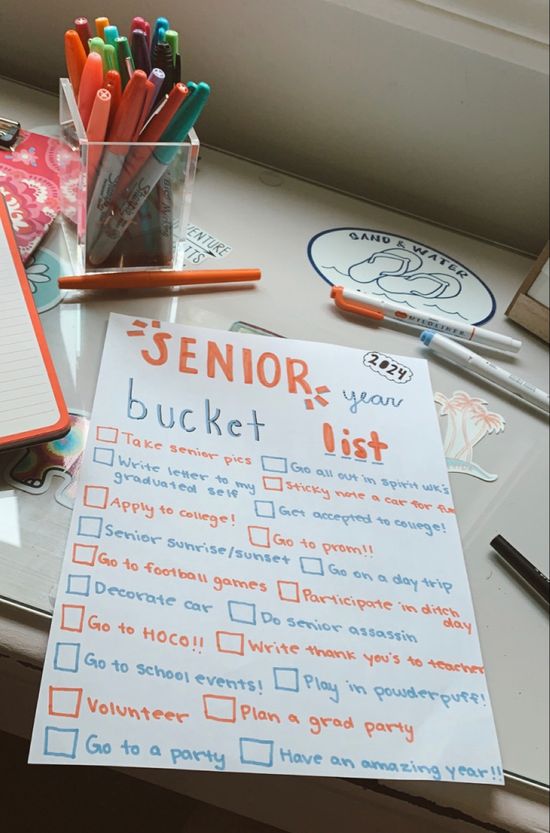 SAND & WATER
MILDLINER
SENIOR
2024
year
bucket
list
Take senior pics
Go all out in spirit wk's
Write letter to my
graduated self
Sticky note a car for fun
Apply to college!
Get accepted to college!
Senior sunrise/sunset
Go to prom!!
Go to football games
Go on a day trip
Decorate car
Participate in ditch
day
Go to HOCO!!
Do senior assassin
Go to school events!
Write thank you's to teacher
Volunteer
Play in powderpuff!
Go to a party
Plan a grad party
Have an amazing year!!